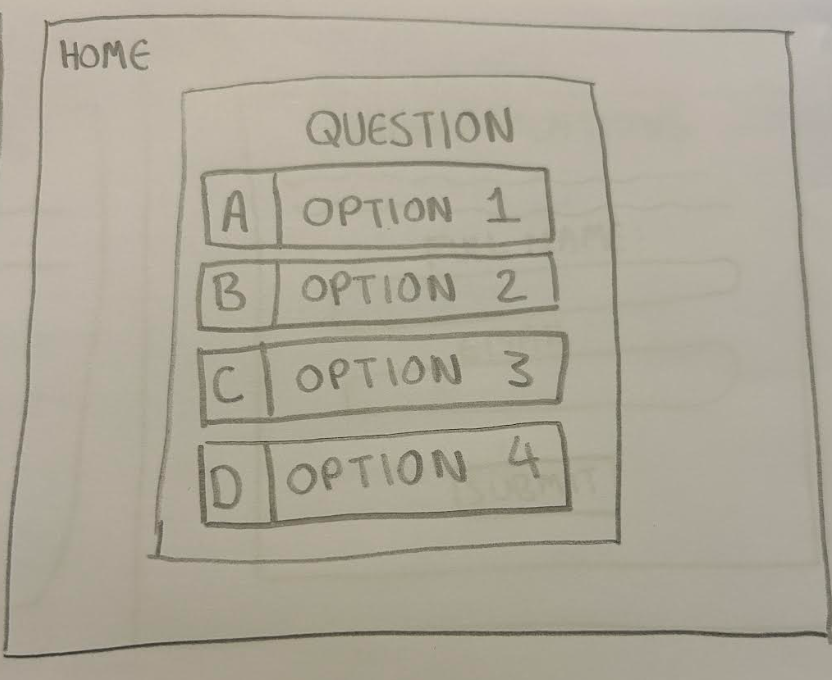 HOME
QUESTION
A OPTION 1
B OPTION 2
C OPTION 3
D OPTION 4
SUBMIT